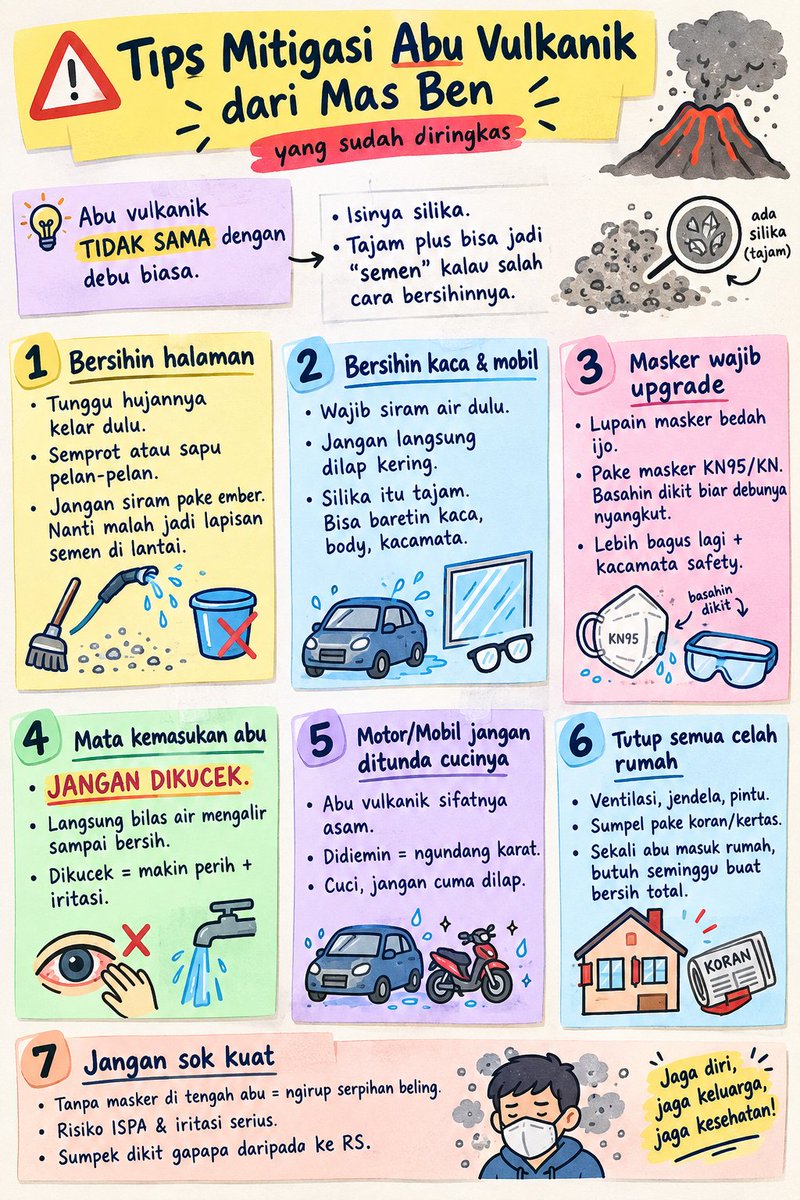 Tips Mitigasi Abu Vulkanik
dari Mas Ben
yang sudah diringkas
Abu vulkanik
TIDAK SAMA dengan
debu biasa.
• Isinya silika.
• Tajam plus bisa jadi
"semen" kalau salah
cara bersihinnya.
ada
silika
(tajam)
1 Bersihin halaman
• Tunggu hujannya
kelar dulu.
• Semprot atau sapu
pelan-pelan.
• Jangan siram pake ember.
Nanti malah jadi lapisan
semen di lantai.
2 Bersihin kaca & mobil
• Wajib siram air dulu.
• Jangan langsung
dilap kering.
• Silika itu tajam.
Bisa baretin kaca,
body, kacamata.
3 Masker wajib
upgrade
• Lupain masker bedah
ijo.
• Pake masker KN95/KN.
Basahin dikit biar debunya
nyangkut.
• Lebih bagus lagi +
kacamata safety.
basahin
dikit
KN95
4 Mata kemasukan abu
• JANGAN DIKUCEK.
• Langsung bilas air mengalir
sampai bersih.
• Dikucek = makin perih +
iritasi.
5 Motor/Mobil jangan
ditunda cucinya
• Abu vulkanik sifatnya
asam.
• Didiemin = ngundang karat.
• Cuci, jangan cuma dilap.
6 Tutup semua celah
rumah
• Ventilasi, jendela, pintu.
• Sumpel pake koran/kertas.
• Sekali abu masuk rumah,
butuh seminggu buat
bersih total.
KORAN
7 Jangan sok kuat
• Tanpa masker di tengah abu = ngirup serpihan beling.
• Risiko ISPA & iritasi serius.
• Sumpek dikit gapapa daripada ke RS.
Jaga diri,
jaga keluarga,
jaga kesehatan!